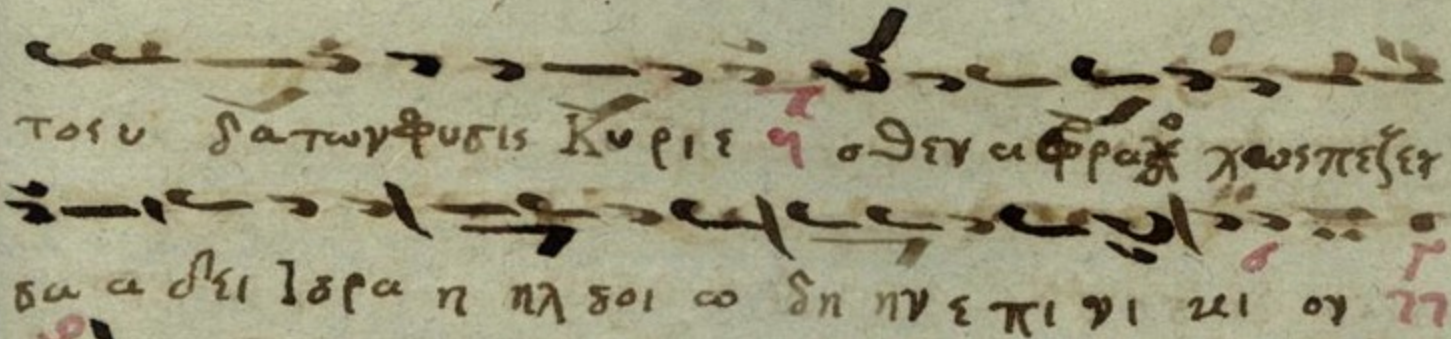 τος υ δα των φυσις Κυριε οθεν α βρο ο χως πεζευ
σα α δει Ισρα η ηλ σοι ω δη ην ε πι νι κι ον